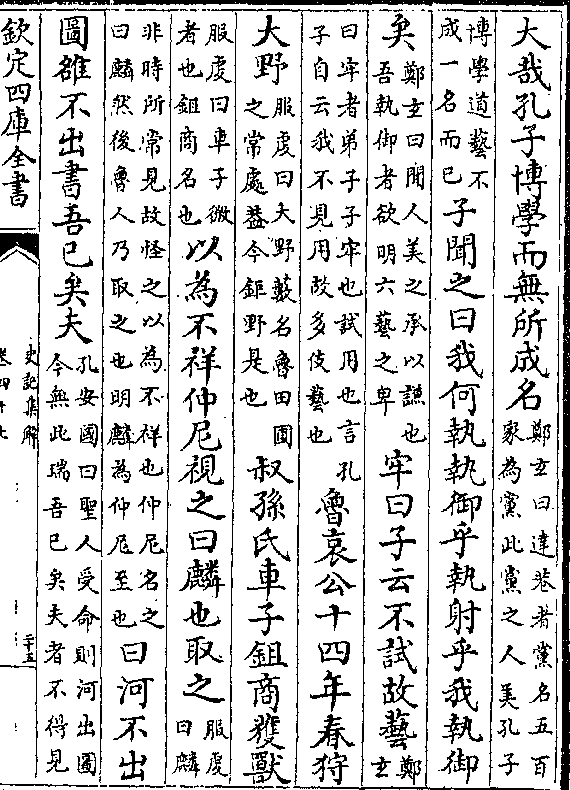 大哉孔子博學而無所成名鄭玄曰達巷者黨名五百家為黨此黨之人美孔子
博學道藝不成一名而已子聞之曰我何執執御乎執射乎我執御
矣鄭玄曰聞人美之承以謙也吾執御者欲明六藝之卑牢曰子云不試故藝鄭玄
曰牢者弟子子牢也試用也言孔子自云我不見用故多伎藝也魯哀公十四年春狩
大野服虔曰大野藪名魯田圃之常處葢今鉅野是也叔孫氏車子鉏商獲獸
服虔曰車子微者也鉏商名也以為不祥仲尼視之曰麟也取之服虔曰麟
非時所常見故怪之以為不祥也仲尼名之曰麟然後魯人乃取之也明麟為仲尼至也曰河不出
圖雒不出書吾已矣夫孔安國曰聖人受命則河出圖今無此瑞吾已矣夫者不得見
欽定四庫全書
史記集解
卷四十七
二十五